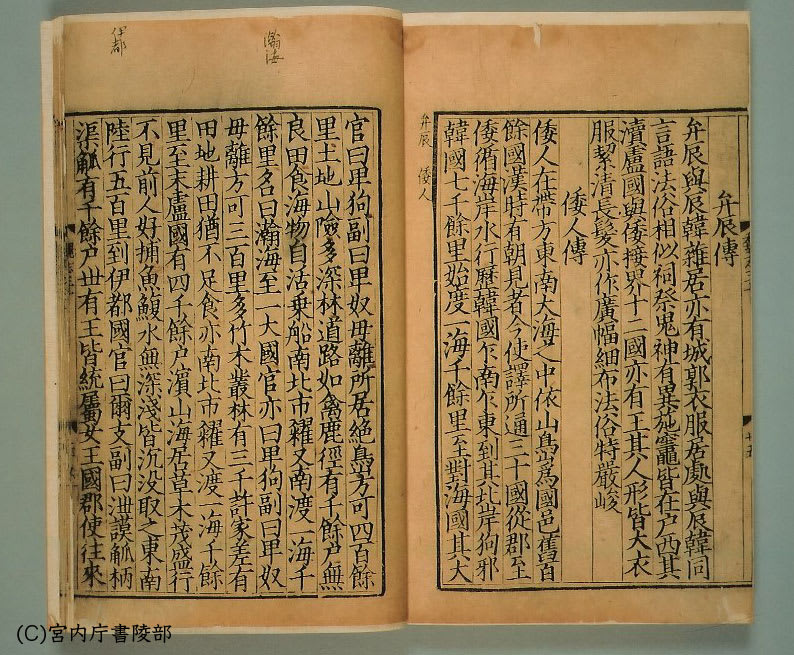 弁辰傳
弁辰與辰韓雜居亦有城郭衣服居處與辰韓同
言語法俗相似祠祭鬼神有異施竈皆在戶西其
瀆盧國與倭接界十二國亦有王其人形皆大衣
服絜清長髮亦作廣幅細布法俗特嚴峻
倭人傳
倭人在帶方東南大海之中依山㠀爲國邑舊百
餘國漢時有朝見者今使譯所通三十國從郡至
倭循海岸水行歷韓國乍南乍東到其北岸狗邪
韓國七千餘里始度一海千餘里至對海國其大
弁辰 倭人
瀚海
伊都
官曰卑狗副曰卑奴毋離所居絶㠀方可四百餘
里土地山險多深林道路如禽鹿徑有千餘戶無
良田食海物自活乗船南北市糴又南渡一海千
餘里名曰瀚海至一大國官亦曰卑狗副曰卑奴
毋離方可三百里多竹木叢林有三千許家差有
田地耕田猶不足食亦南北市糴又渡一海千餘
里至末盧國有四千餘戶濱山海居草木茂盛行
不見前人好捕魚鰒水無深淺皆沉没取之東南
陸行五百里到伊都國官曰爾支副曰泄謨觚柄
渠觚有千餘戶丗有王皆統屬女王國郡使往來
(C)宮内庁書陵部